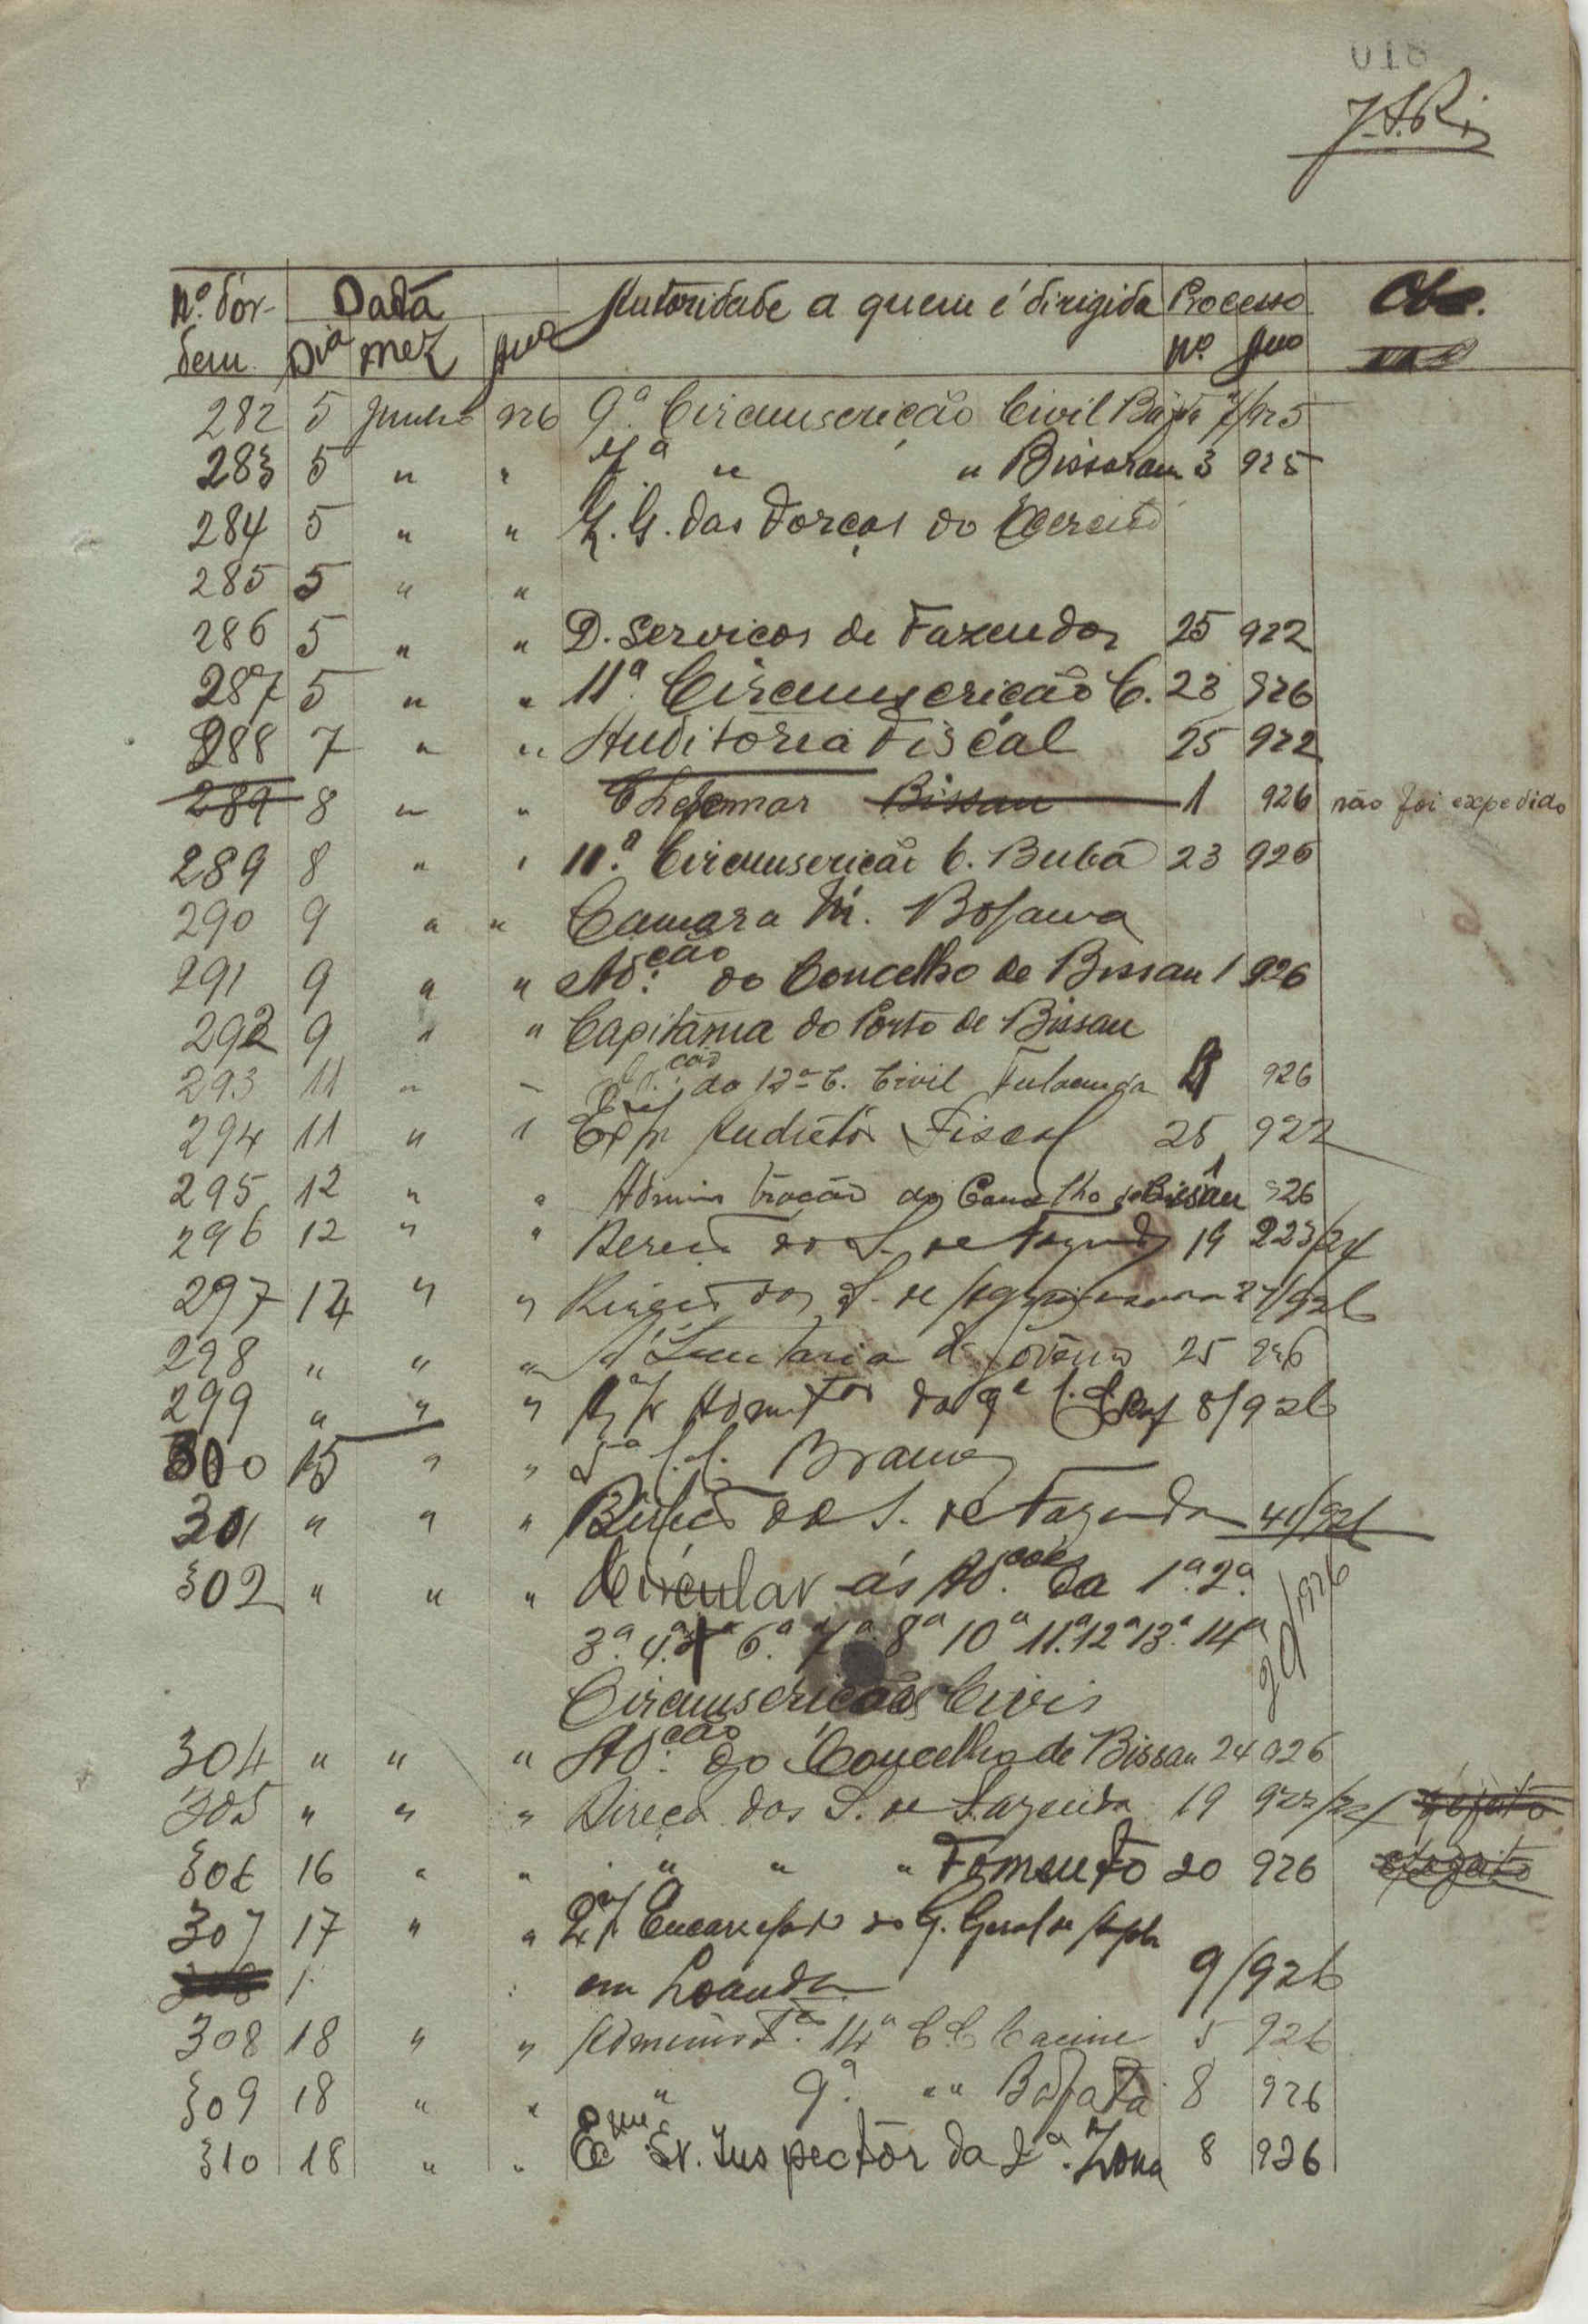 018
Nº. d'or- Data Autoridade a quem é dirigida Processo Obs.
dem. Dia mez Ano Nº. Ano
282 5 Junho 926 9ª. Circunscrição Civil Bafatá 7/925
283 5 " " 4ª " " Bissoram 3 925
284 5 " " Q. G. das Forças do Exercito
285 5 " "
286 5 " " D. Serviços de Fazenda 25 922
287 5 " " 11ª. Circunscrição C. 23 926
288 7 " " Auditoria Fiscal 25 922
289 8 " " Chefe mar Bissau 1 926 não foi expedido
289 8 " " 11ª. Circunscrição C. Bubá 23 926
290 9 " " Camara M. Bolama
291 9 " " Ad.ção do Concelho de Bissau 1 926
292 9 " " Capitánia do Porto de Bissau
293 11 " " da 12ª C. Civil Fulacunda 926
294 11 " " Auditór Fiscal 25 922
295 12 " " Administração do Concelho de Bissau 1 926
296 12 " " do S. de Fazenda 19 223/24
297 14 " " dos S. de 27/926
298 " " " Secretaria do Govêrno 25 926
299 " " " da 9ª C. C. 8/926
300 15 " " 5ª C. C. Brame
301 " " " S. de Fazenda 41/926
302 " " " Circular ás Ad.ções da 1ª. 2ª.
3ª. 4ª. 6ª. 7ª. 8ª 10ª 11ª. 12ª 13ª. 14ª 29/926
Circunscrições Civis
304 " " " Ad.ção do Concelho de Bissau 24 926
305 " " " Direcç dos S. de Fazenda 19 923/24
306 16 " " " " " Fomento 20 926
307 17 " " Encarregado do G. Geral de
em Loanda 9/926
308 18 " " 14ª C. C. Cacine 5 926
309 18 " " " 9ª. " " Bafatá 8 926
310 18 " " Sr. Inspectôr da 2ª. Zona 8 926